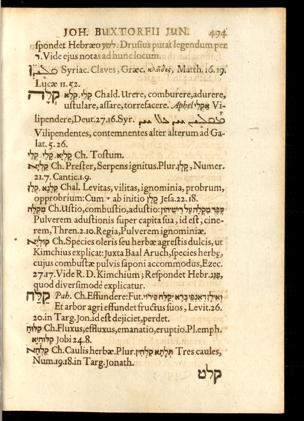 JOH. BUXTORFII JUN. 494
spondet Hebræo Drusius putat legendum per
ר. Vide ejus notas ad hunc locum.
Syriac. Claves, Græc. κλεῖδες, Matth. 16. 19.
Lucæ 11. 52.
קלה Chald. Urere, comburere, adurere,
ustulare, assare, torrefacere. Aphel Vi-
lipendere, Deut. 27. 16. Syr.
Vilipendentes, contemnentes alter alterum ad Ga-
lat. 5. 26.
Ch. Tostum.
Ch. Prester, Serpens ignitus. Plur. Numer.
21. 7. Cantic. 1. 9.
Chal. Levitas, vilitas, ignominia, probrum,
opprobrium: Cum ab initio קלון Jesa. 22. 18.
Ch. Ustio, combustio, adustio:
Pulverem adustionis super capita sua, id est, cine-
rem, Thren. 2. 10. Regia, Pulverem ignominiæ.
Ch. Species oleris seu herbæ agrestis dulcis, ut
Kimchius explicat: Juxta Baal Aruch, species herbæ,
cujus combustæ pulvis saponi accommodus, Ezec.
27. 17. Vide R. D. Kimchium; Respondet Hebr.
quod diversimodè explicatur.
קלח Pah. Ch. Effundere: Fut.
Et arbor agri effundet fructus suos, Levit. 26.
20. in Targ. Jon. id est dejiciet, perdet.
Ch. Fluxus, effluxus, emanatio, eruptio. Pl. emph.
Jobi 24. 8.
Ch. Caulis herbæ. Plur. Tres caules,
Num. 19. 18. in Targ. Jonath.
קלט